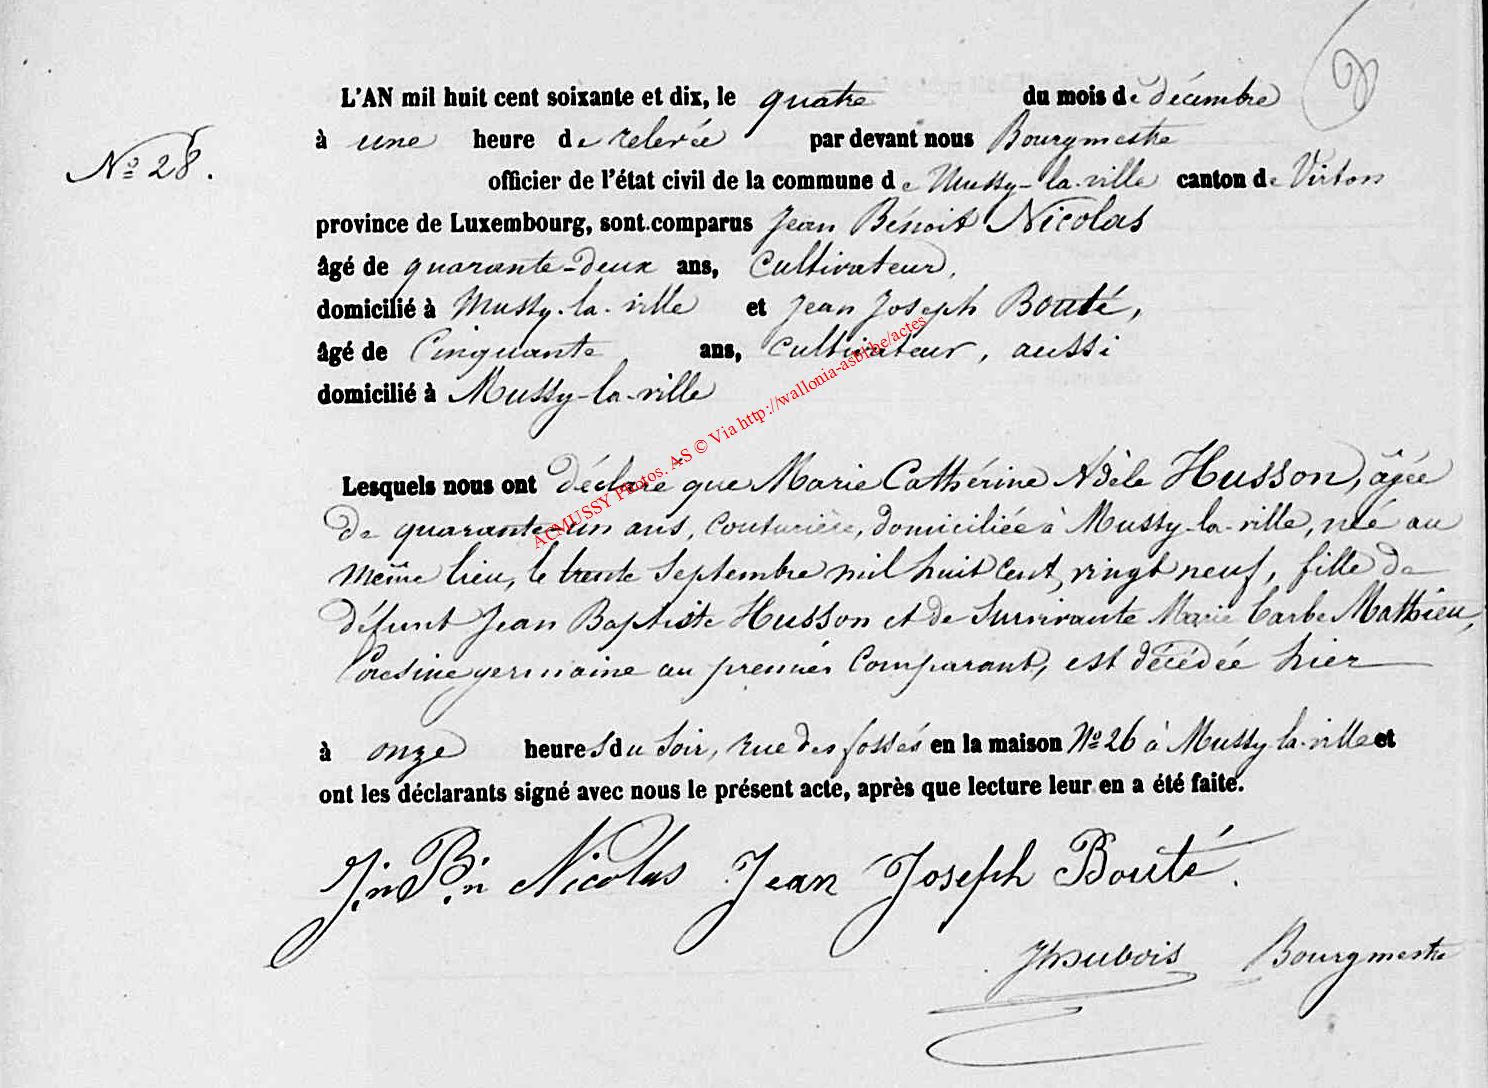 L'AN mil huit cent soixante et dix, le quatre du mois de décembre
No 28.
à une heure de relevée par devant nous Bourgmestre
officier de l'état civil de la commune de Mussy-la-ville canton de Virton
province de Luxembourg, sont comparus Jean Bénoit Nicolas
âgé de quarante-deux ans, Cultivateur,
domicilié à Mussy-la-ville et Jean Joseph Bouté,
âgé de Cinquante ans, cultivateur, aussi
domicilié à Mussy-la-ville
ACMUSSY Photos. AS © Via http://wallonia-asbl.be/actes
Lesquels nous ont déclaré que Marie Cathérine Adèle Husson, âgée
de quarante-un ans, couturière, domiciliée à Mussy-la-ville, née au
même lieu, le trente Septembre mil huit Cent vingt neuf, fille de
défunt Jean Baptiste Husson et de Survivante Marie barbe Mathieu,
Cousine germaine au premier Comparant, est décédée hier
à onze heures du Soir, rue des fossés en la maison No 26 à Mussy-la-ville et
ont les déclarants signé avec nous le présent acte, après que lecture leur en a été faite.
J.n B.n Nicolas Jean Joseph Bouté.
Dubois Bourgmestre